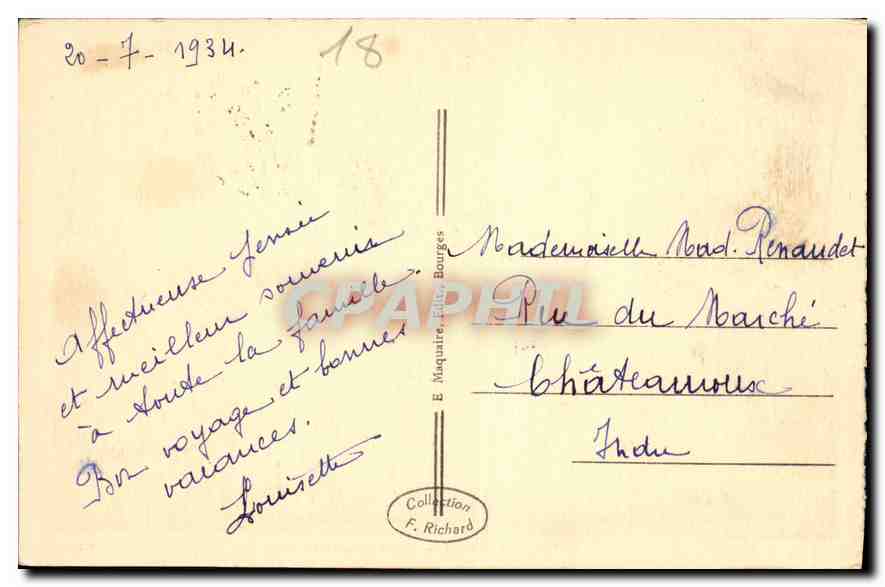 20 - 7 - 1934.
18
Affectueuse pensée
et meilleur souvenir
à toute la famille.
Bon voyage et bonnes
vacances.
Louisette
E Maquaire, Edit., Bourges
CPAPHIL
Mademoiselle Mad. Renaudet
Rue du Marché
Châteauroux
Indre
Collection
F. Richard